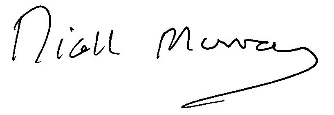 Niall Murray